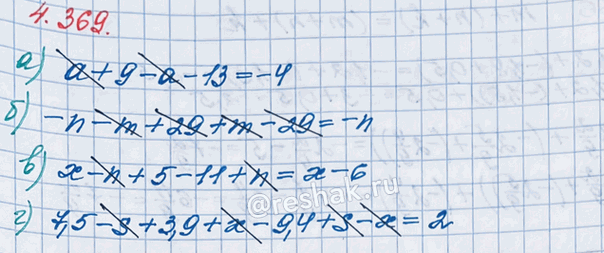 4.369.
а) a + 9 - a - 13 = -4
б) -n - m + 29 + m - 29 = -n
в) x - n + 5 - 11 + n = x - 6
@reshak.ru
г) 7,5 - s + 3,9 + x - 9,4 + s - x = 2